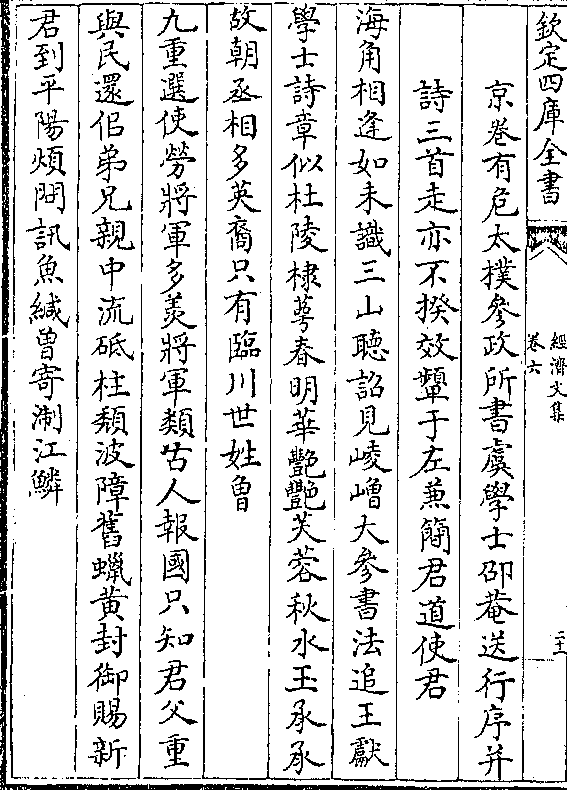 欽定四庫全書
經濟文集
卷六
二十
京卷有危太撲參政所書虞學士邵菴送行序并
詩三首走亦不揆效顰于左蒹簡君道使君
海角相逢如未識三山聽詔見崚嶒大參書法追王獻
學士詩章似杜陵棣蕚春明華艷艷芙蓉秋水玉承承
故朝丞相多英裔只有臨川世姓曾
九重選使勞將軍多羡將軍類古人報國只知君父重
與民還侣弟兄親中流砥柱頽波障舊蠟黄封御賜新
君到平陽煩問訊魚緘曽寄淛江鱗